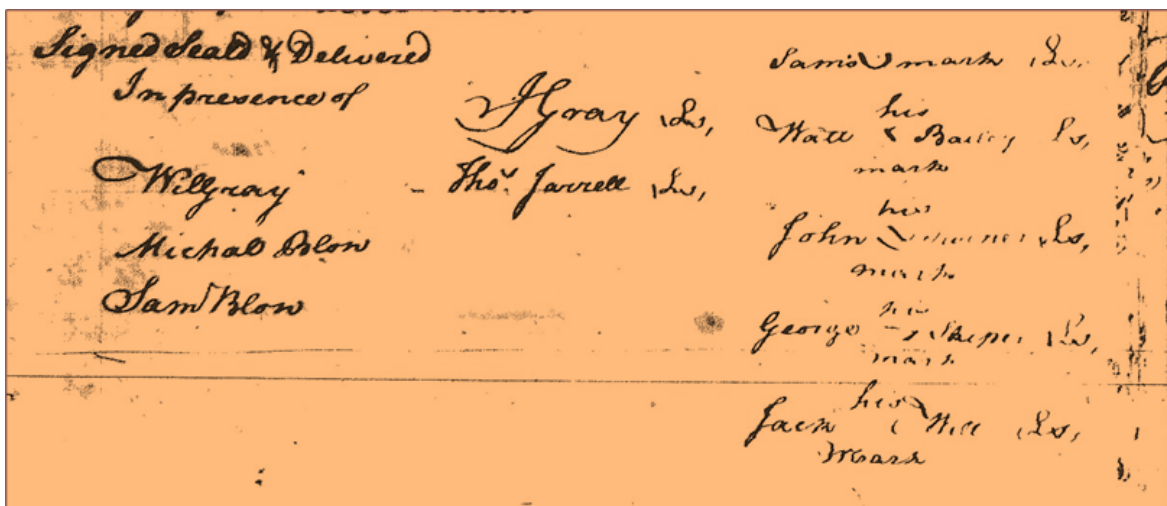 Signed Seald & Delivered
In presence of
Will Gray
Michal Blow
Saml Blow
JGray Ls,
Thos. Jarrell Ls,
Sam's mark Ls,
his
Watt x Bailey Ls,
mark
his
John Ls,
mark
his
George Ls,
mark
his
Jack Will Ls,
Mark